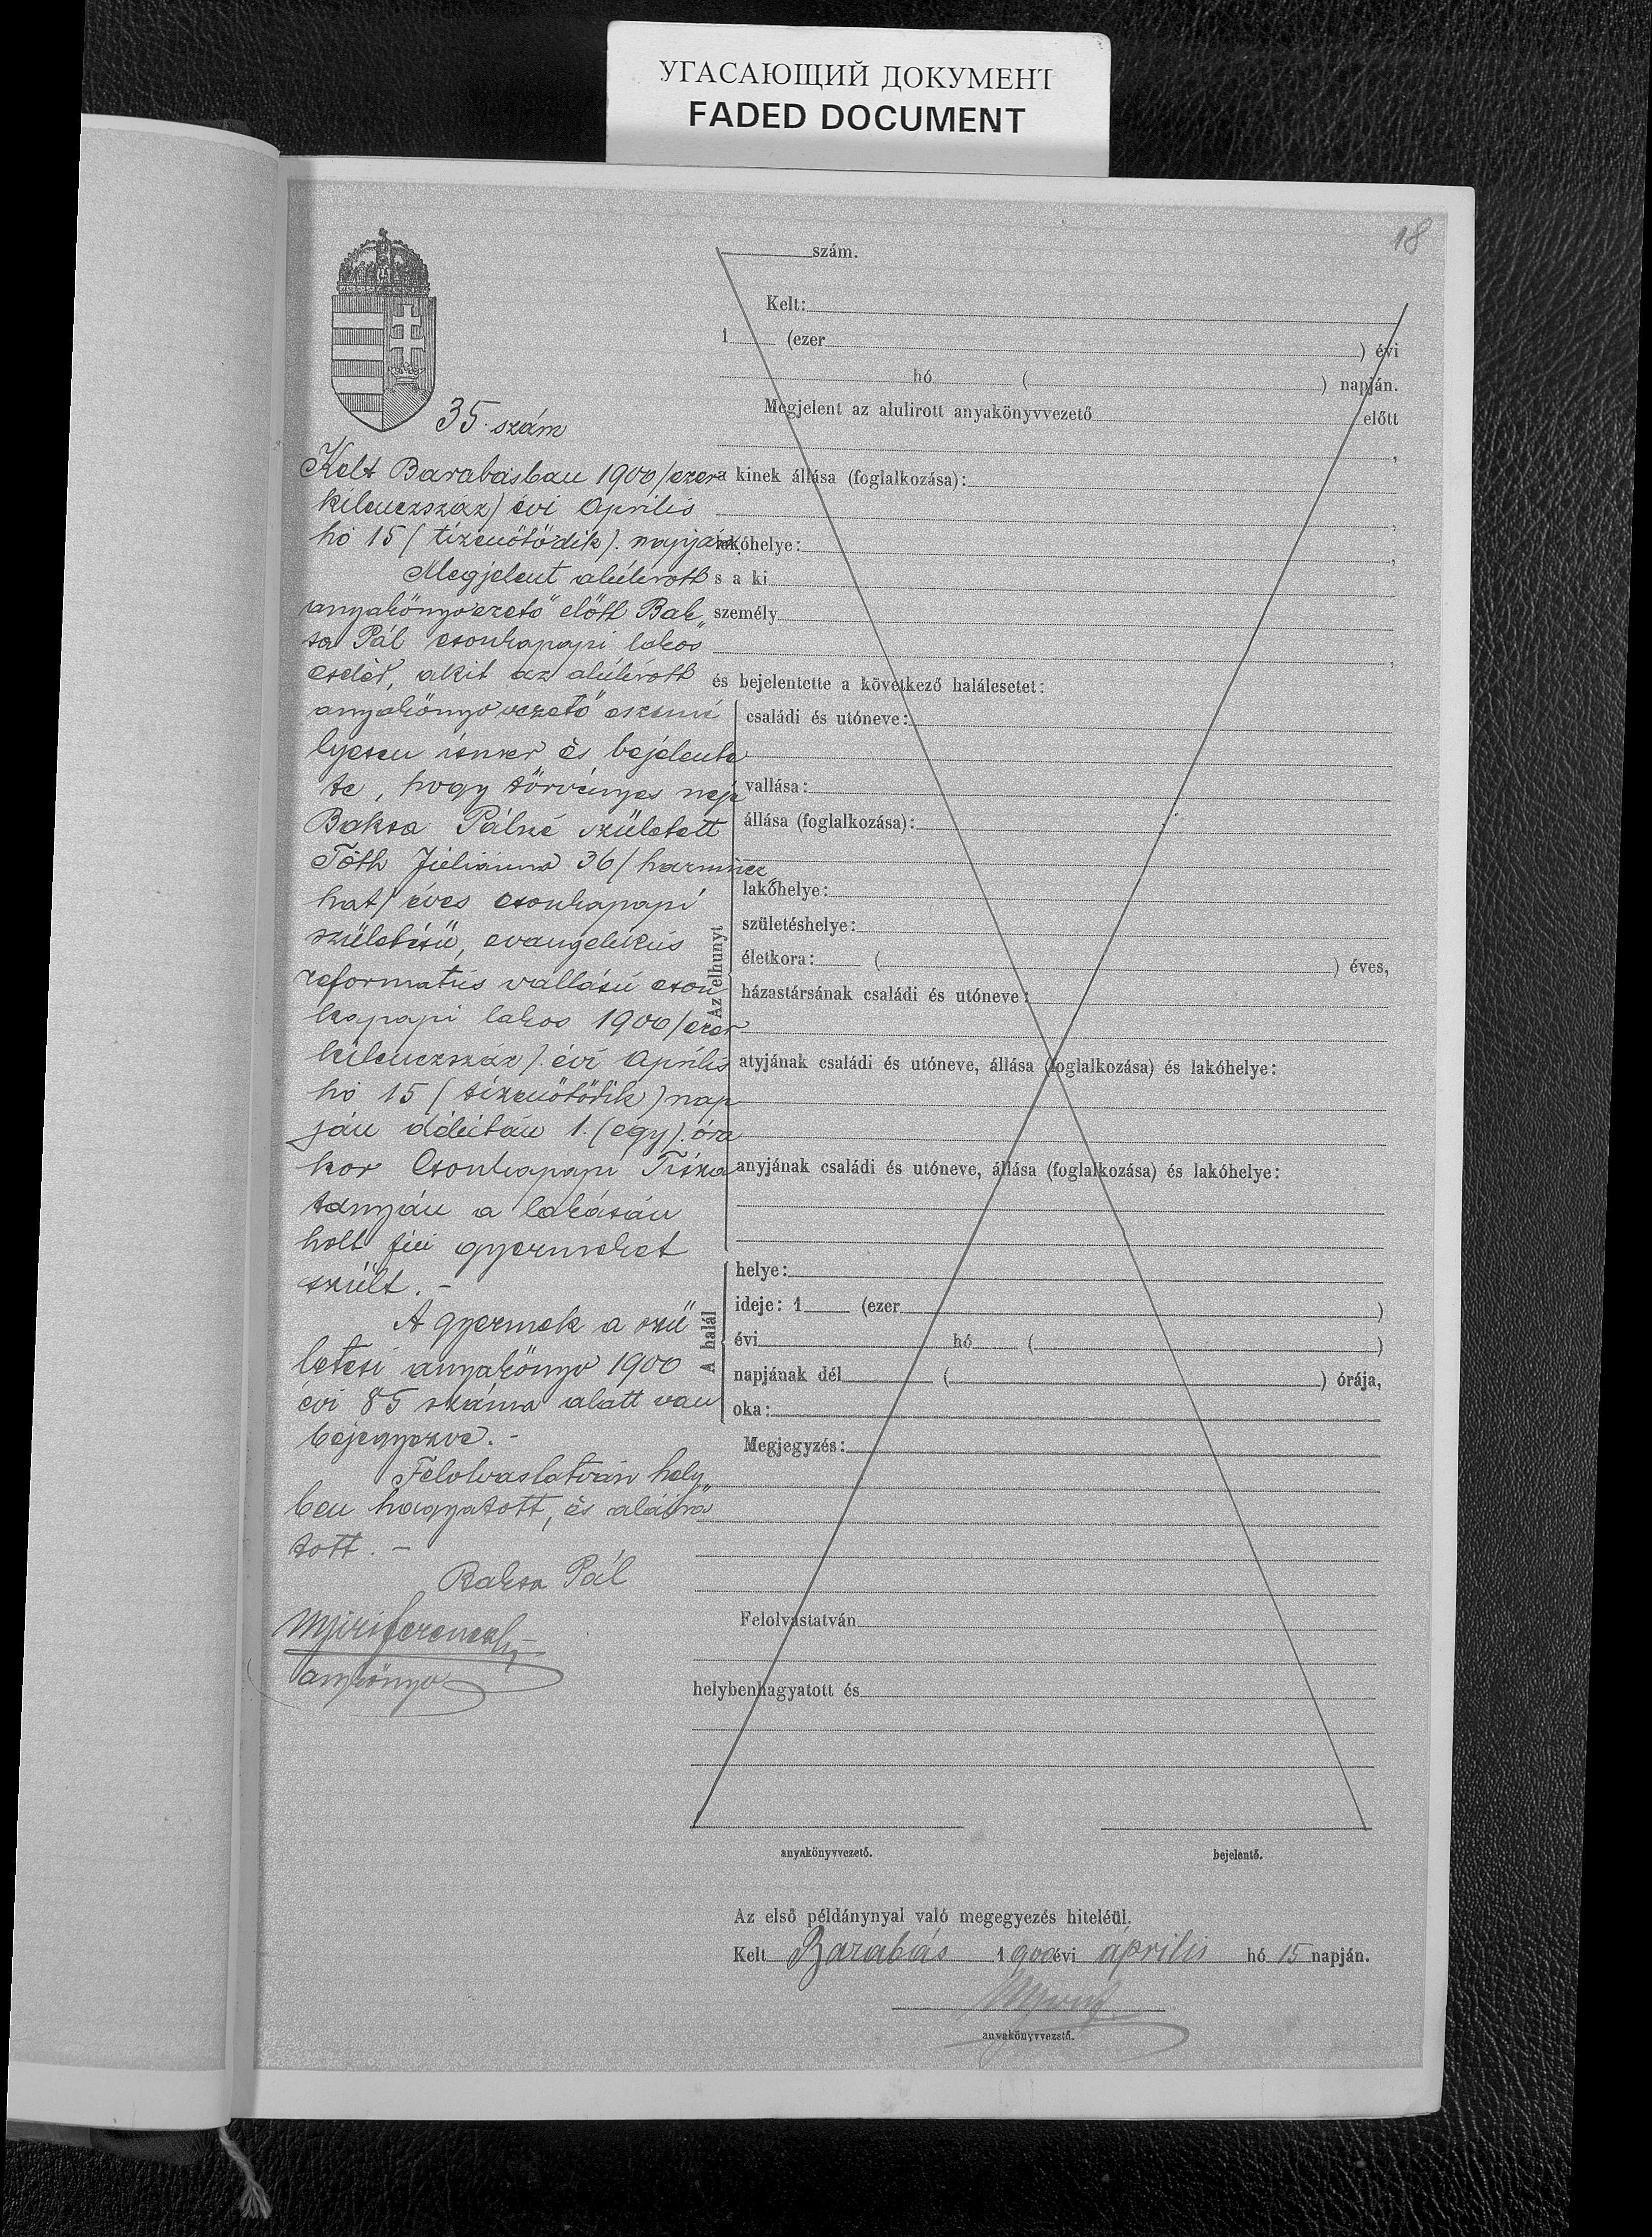 УГАСАЮЩИЙ ДОКУМЕНТ
FADED DOCUMENT
18
35. szám
Kelt Barabásban 1900 /ezer
kilenczszáz) évi Április
hó 15 ( tizenötödik). napján.
Megjelent alúlirott
anyakönyvezető előtt Bak„
sa Pál csonkapapi lakos
cseléd, akit az alúlirott
anyakönyvvezető szemé
lyesen ismer és bejelente
te, hogy törvényes neje
Baksa Pálné született
Tóth Júliánna 36 / harmincz
hat/ éves csonkapapi
születésű, evangelikus
reformatus vallásu cson
kapapi lakos 1900 /ezer
kilenczszáz). évi Április
hó 15 ( tizenötödik ) nap
ján délután 1. (egy). óra
kor Csonkapapi Tisza
tanyán a lakásán
holt fiu gyermeket
szült. –
A gyermek a szü
letési anyakönyv 1900
évi 85 száma alatt van
bejegyezve. –
Felolvastatván hely„
ben hagyatott, és aláira
tott. –
Baksa Pál
Nyiri ferencz
anykönyv
szám.
Kelt:
1 (ezer ) évi
hó ( ) napján.
Megjelent az alulirott anyakönyvvezető előtt
,
a kinek állása (foglalkozása):
,
lakóhelye: ,
s a ki
személy
,
és bejelentette a következő halálesetet:
Az elhunyt
családi és utóneve:
vallása:
állása (foglalkozása):
lakóhelye:
születéshelye:
életkora: ( ) éves,
házastársának családi és utóneve:
atyjának családi és utóneve, állása (foglalkozása) és lakóhelye:
anyjának családi és utóneve, állása (foglalkozása) és lakóhelye:
A halál
helye:
ideje: 1 (ezer )
évi hó ( )
napjának dél ( ) órája,
oka:
Megjegyzés:
Felolvastatván
helybenhagyatott és
anyakönyvvezető. bejelentő.
Az első példánynyal való megegyezés hiteléül.
Kelt Barabás 1900 évi április hó 15 napján.
anyakönyvvezető.